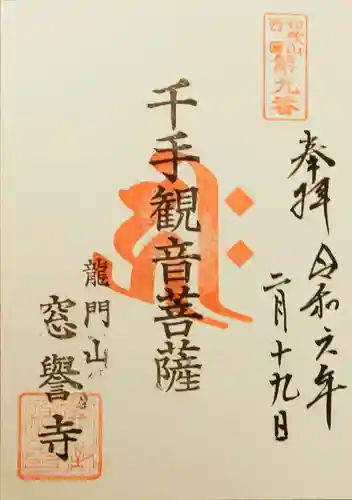 和歌山
西国
第九番
奉拝
令和六年
二月十九日
千手観音菩薩
龍門山
窓譽寺